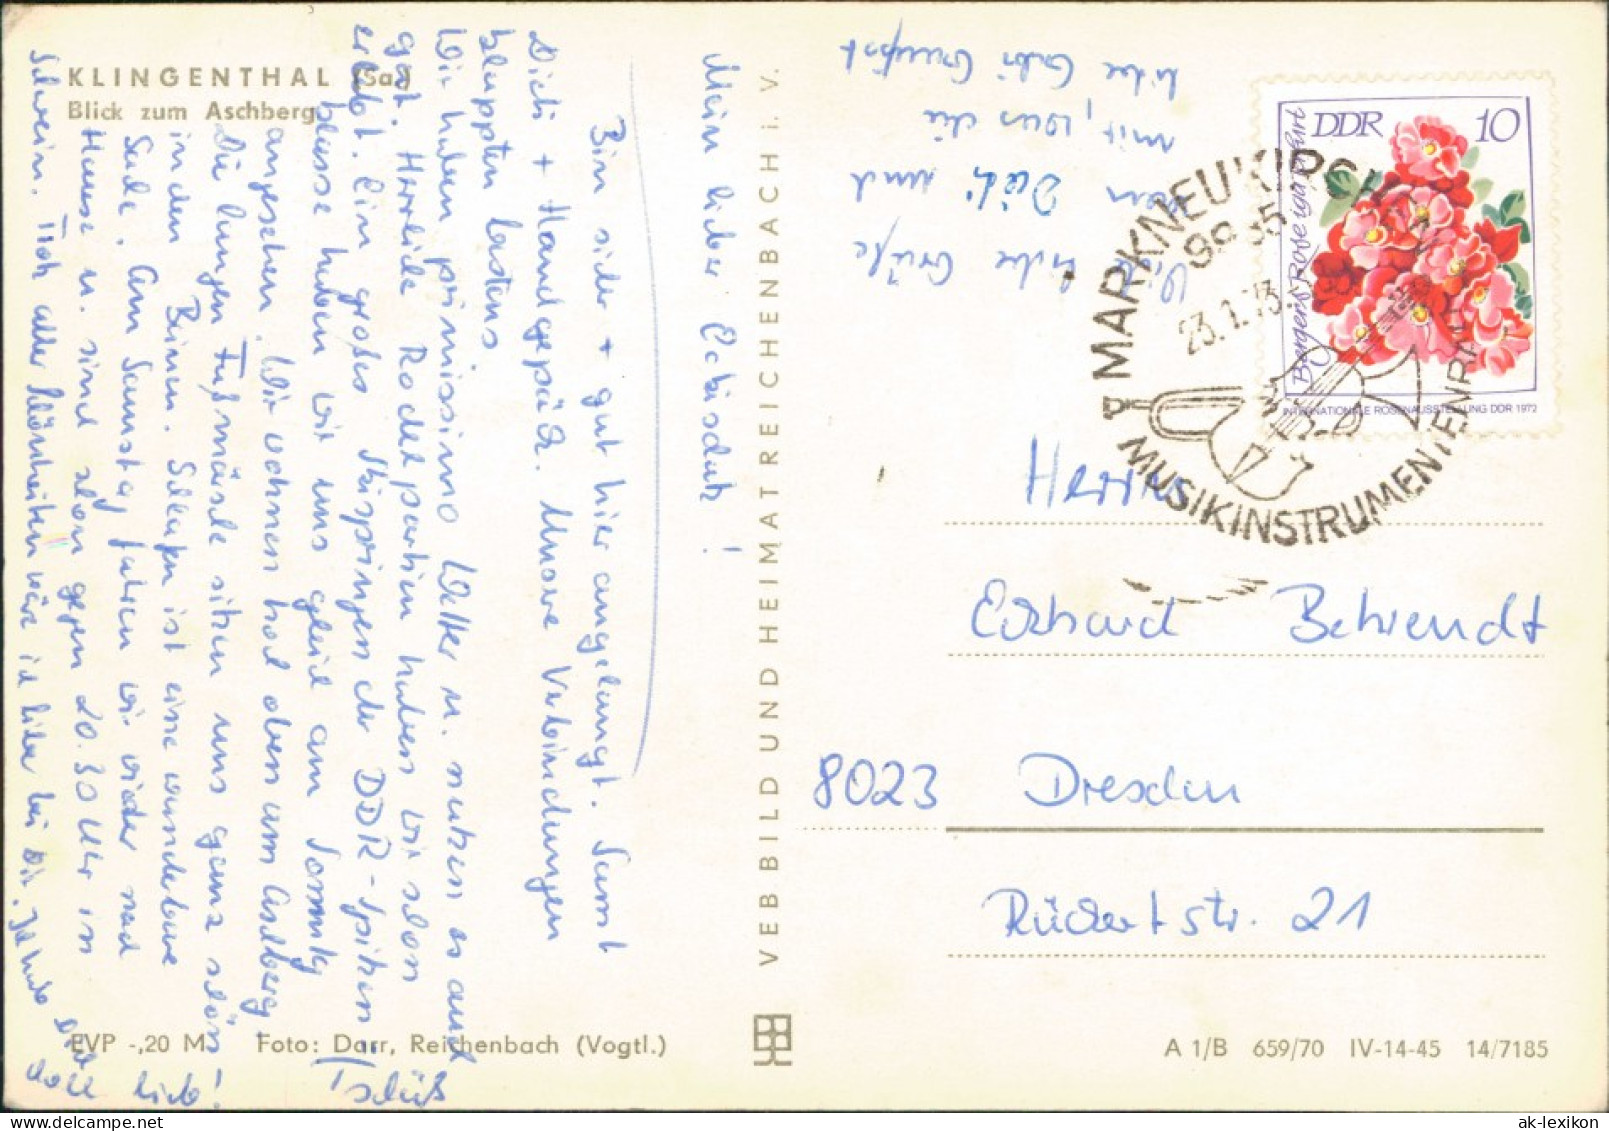 KLINGENTHAL (Sa.)
Blick zum Aschberg
Mein lieber Eckischatz!
Bin sicher + gut hier angelangt. Samt
Dich + Handgepäck. Unsere Verbindungen
klappten bestens.
Wir haben primissimo Wetter u. nutzen es auch
gut. Herrliche Rodelpartien haben wir schon
erlebt. Ein großes Skispringen der DDR-Spitzen
klasse haben wir uns gleich am Sonntag
angesehen. Wir wohnen hoch oben am Aschberg,
Die langen Fußmärsche sitzen uns ganz schön
in den Beinen. Schlafen ist eine wunderbare
Sache. Am Samstag fahren wir wieder nach
Hause u. sind schon gegen 20.30 Uhr in
Schwein. Trotz aller Schönheiten wäre ich lieber bei Dir. Ich habe Dich
doll lieb!
Tschüß
Viele liebe Grüße
an Dich und
mit, was die
liebe Gabi
VEB BILD UND HEIMAT REICHENBACH i. V.
EVP -,20 M
Foto: Darr, Reichenbach (Vogtl.)
A 1/B 659/70 IV-14-45 14/7185
DDR 10
Bergers Rose iga Erfurt
INTERNATIONALE ROSENAUSSTELLUNG DDR 1972
MARKNEUKIRCHEN
9659
23.1.73
MUSIKINSTRUMENTEN
Herrn
Eckhard Behrendt
8023 Dresden
Rückertstr. 21
ak-lexikon.com